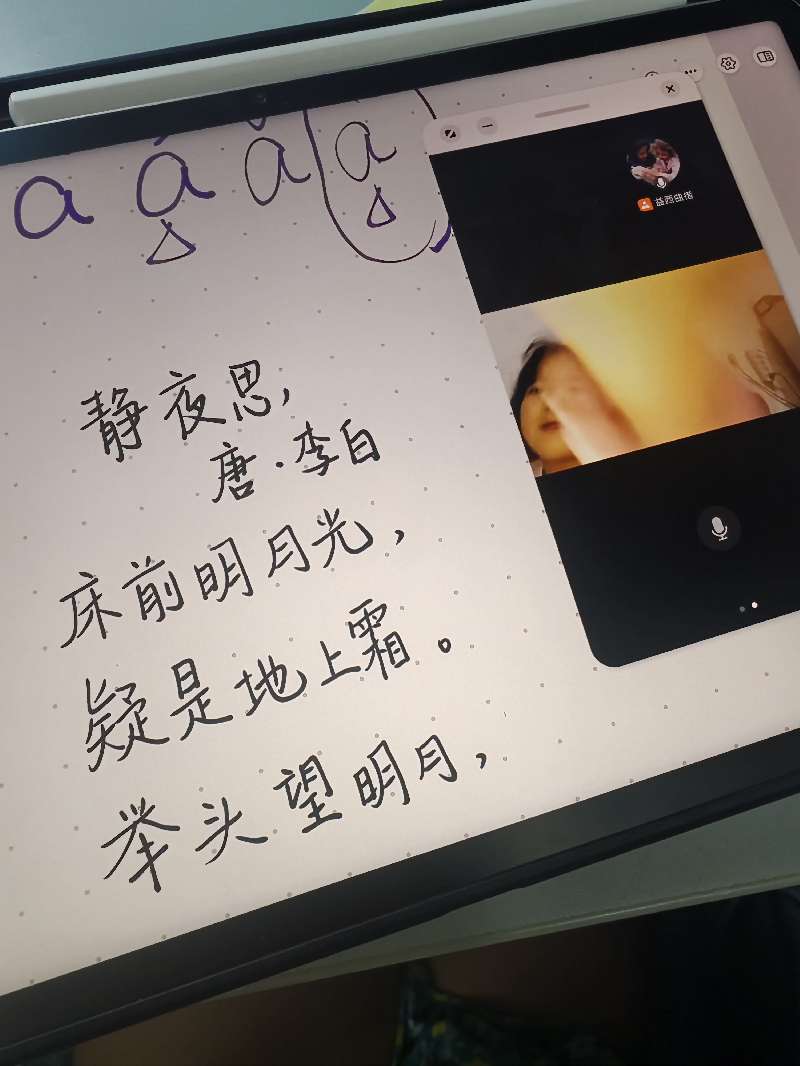 ā á ǎ à
益西曲措
静夜思,
唐·李白
床前明月光,
疑是地上霜。
举头望明月,